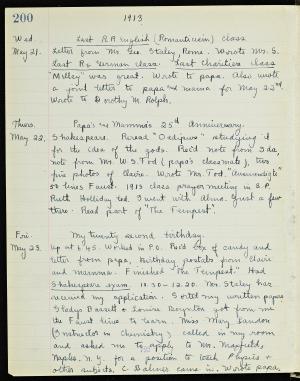 200
1913
Wed.
May 21.
Last R.A. English (Romanticism) class
Letter from Mr. Geo. Staley, Rome. Wrote Mrs. S.
Last R. German class. Last Charities class
"Milley" was great. Wrote to papa. Also wrote
a joint letter to papa and mama for May 22nd.
Wrote to Dorothy M. Rolph.
Thurs.
May 22.
Papa's and Mamma's 25th Anniversary.
Shakespeare. Reread "Oedipus" studying it
for the idea of the gods. Rec'd note from Ida,
note from Mr. W.S. Tod (papa's classmate), two
fine photos of Claire. Wrote Mr. Tod.
50 lines Faust. 1913 class prayer meeting in B.P.
Ruth Holliday led. I went with Alma. Just a few
there. Read part of "The Tempest".
Fri.
May 23.
My twenty second birthday.
Up at 6:45. Worked in P.O. Rec'd box of candy and
letter from papa, birthday postals from Claire
and mamma. Finished "The Tempest." Had
Shakespeare exam 10.30-12.20. Mr. Staley has
received my application. Sorted my written papers
Gladys Barrett + Louise Boynton got from me
the Faust lines to learn. Miss Mary Landon
(Instructor in Chemistry) called in my room
and asked me to apply to Mr. Mayfield,
Naples, N.Y. for a position to teach Physics +
other subjects. C. Balmer came in. Wrote papa,